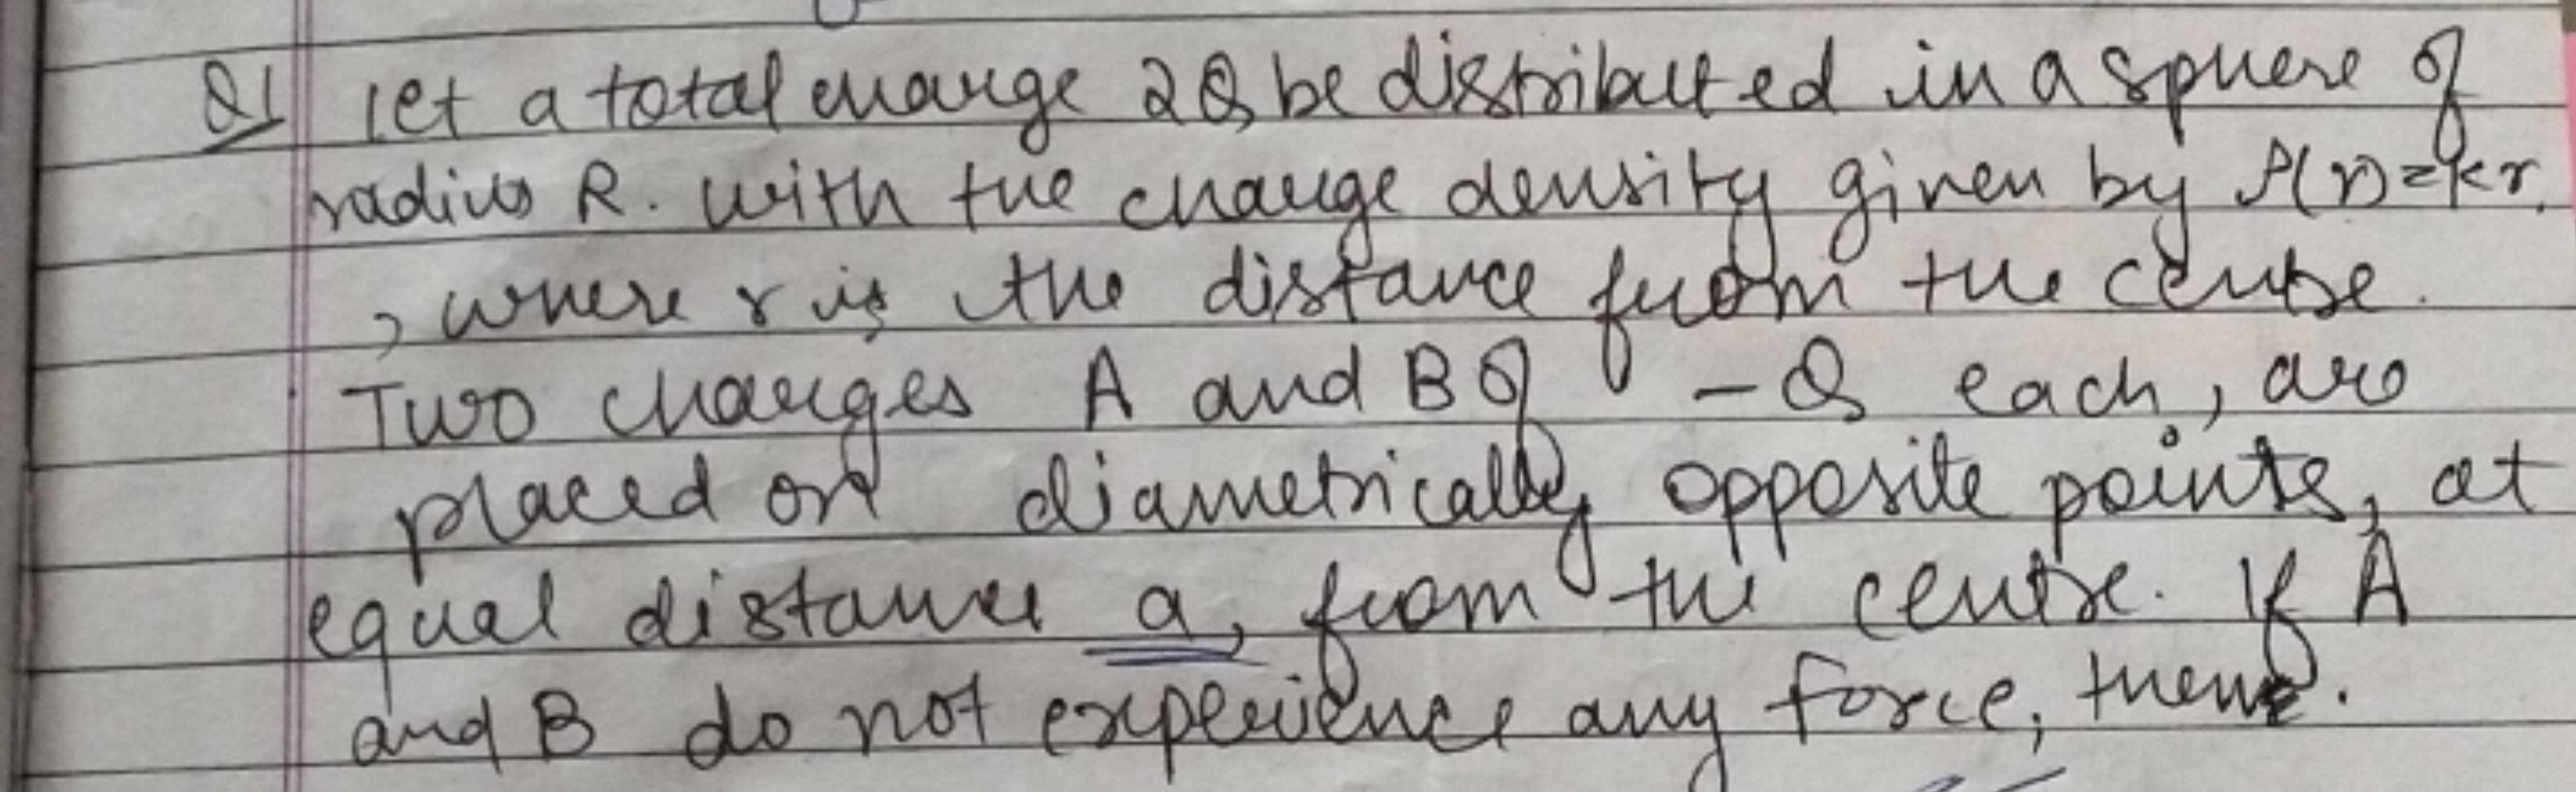 Q1 Let a total charge 2Q be distributed in a sphere of
radius R. with the charge density given by ρ(r)=kr.
, where r is the distance from the centre.
Two charges A and B of -Q each, are
placed on diametrically opposite points, at
equal distance a, from the centre. If A
and B do not experience any force, then.